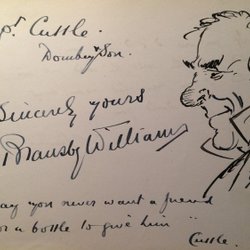 pt Cuttle.
Dombey & Son.
Sincerely yours
Bransby Williams
ay you never want a friend
or a bottle to give him"
Cuttle.